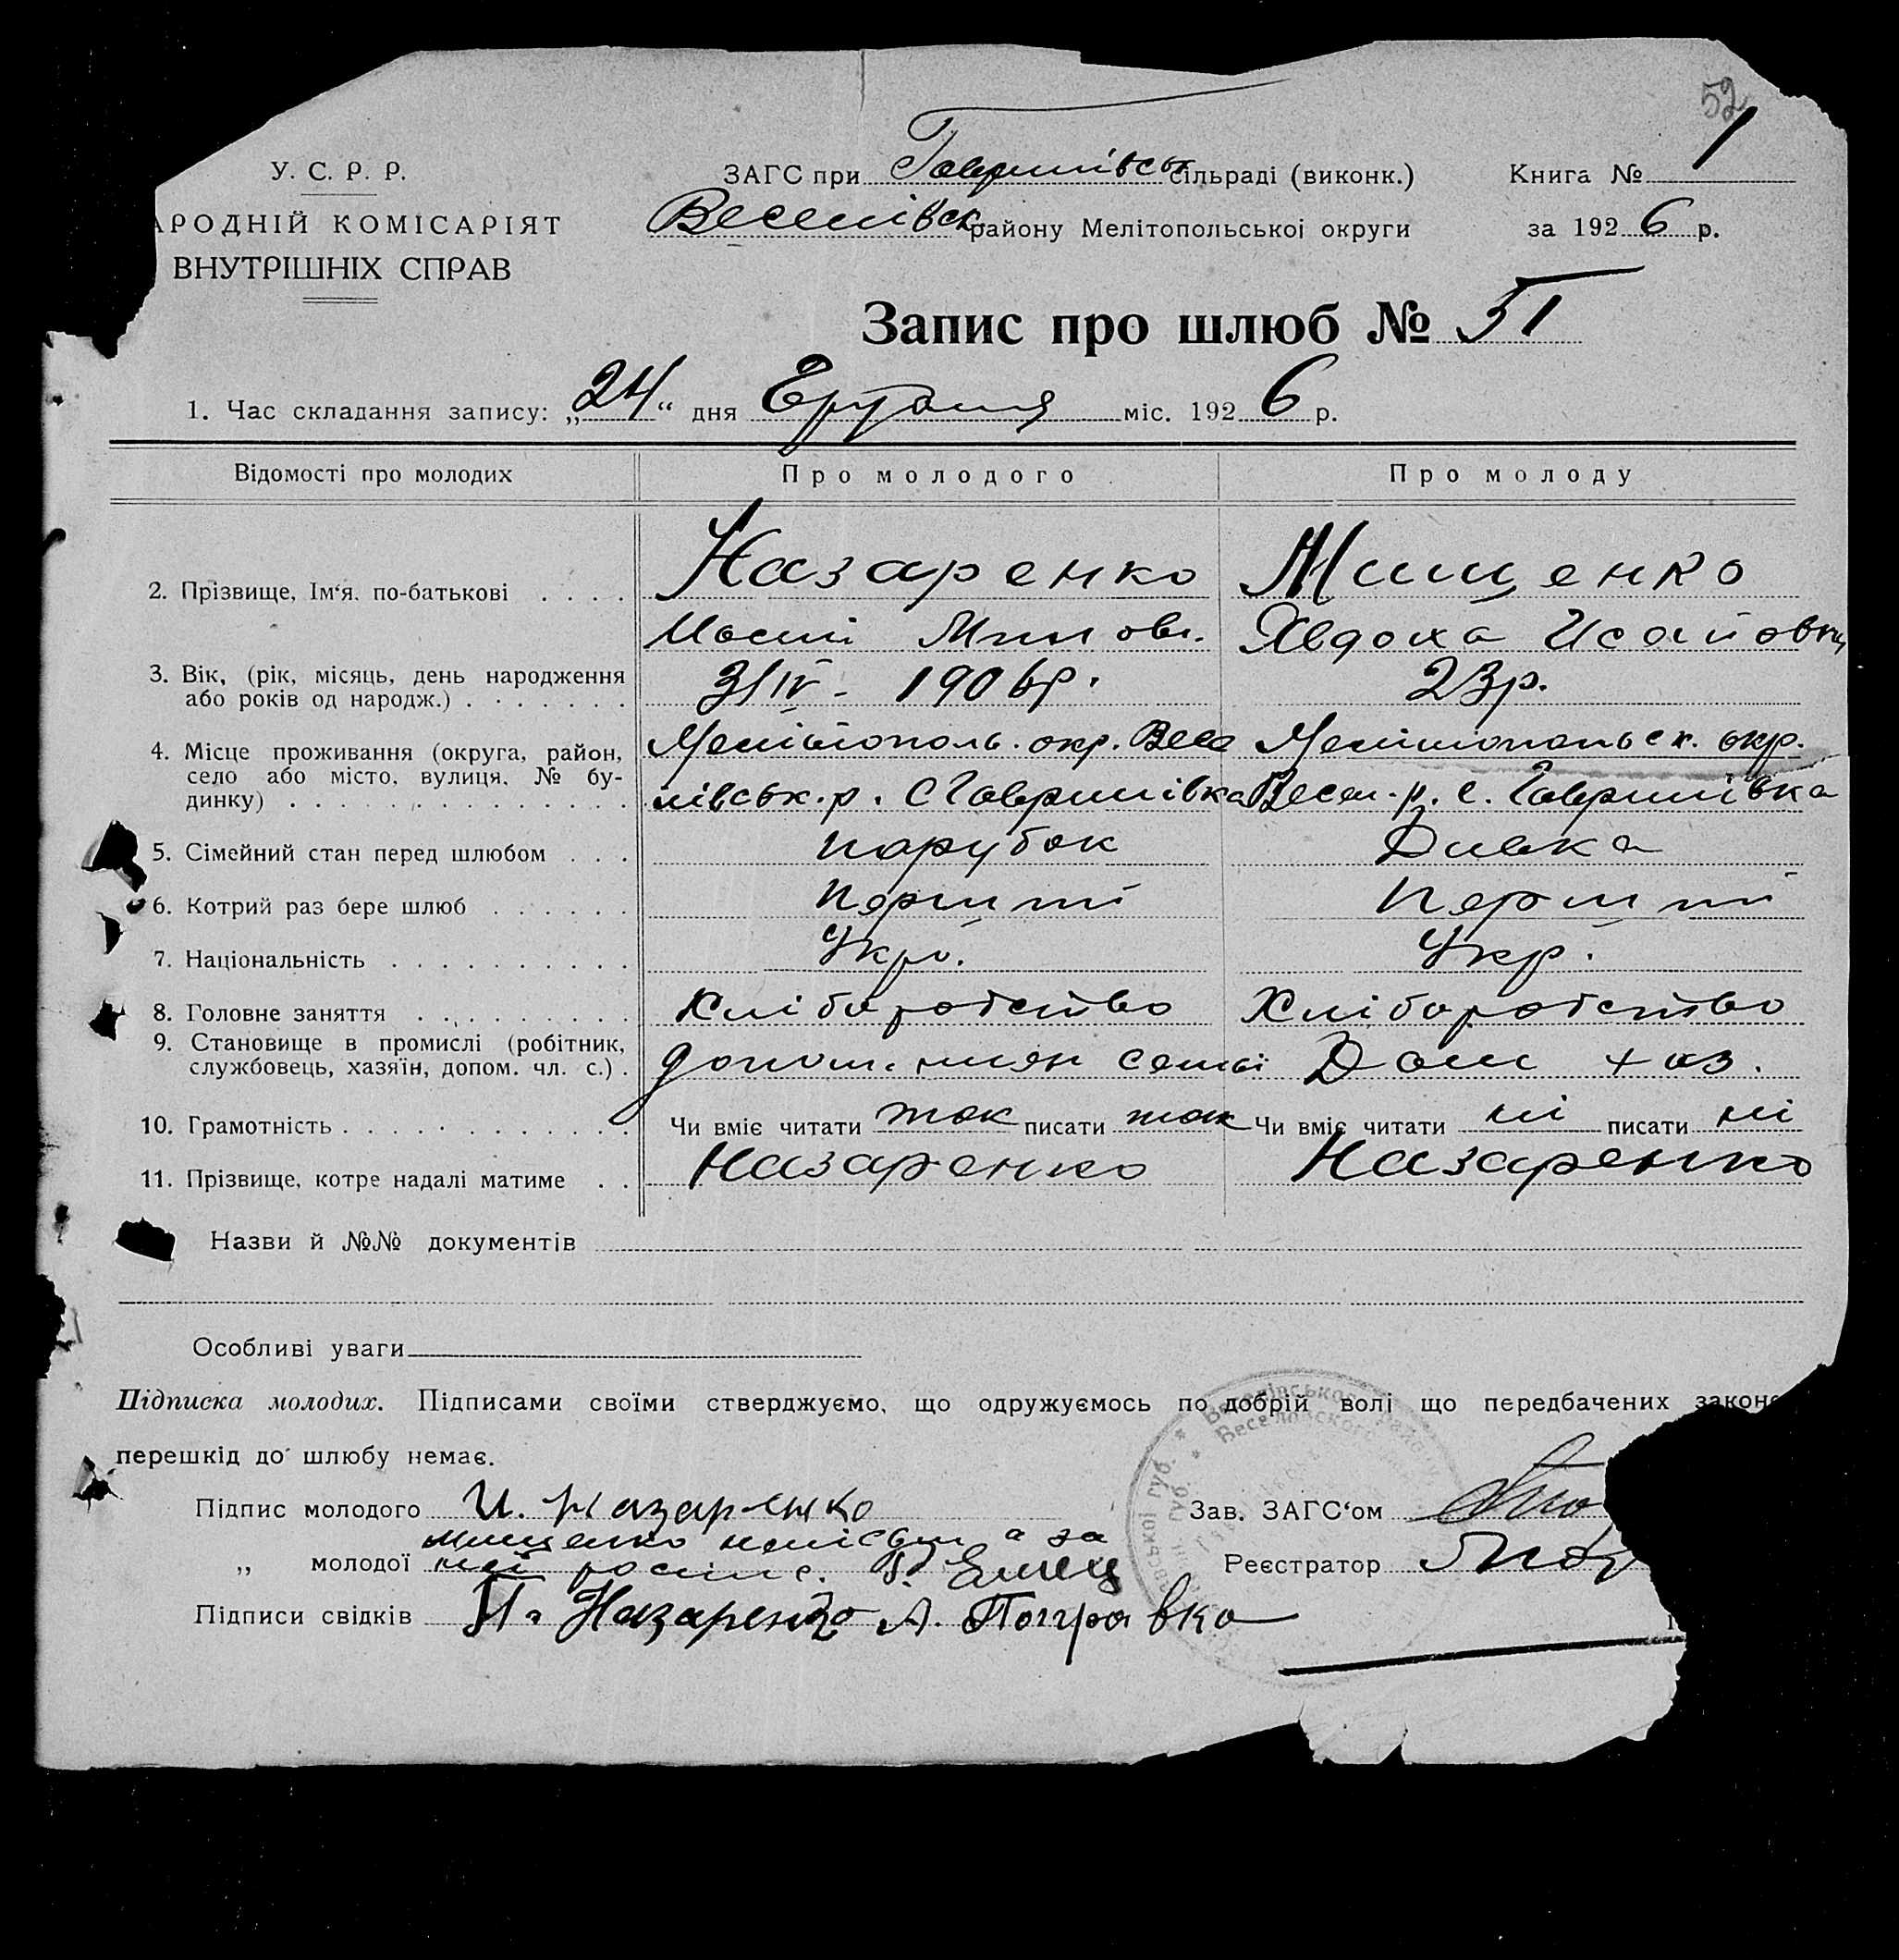 52
У. С. Р. Р.
АРОДНІЙ КОМІСАРІЯТ
ВНУТРІШНІХ СПРАВ
ЗАГС при Гаврилівськ сільраді (виконк.)
Веселівськ району Мелітопольської округи
Книга № 1
за 1926 р.
Запис про шлюб № 51
1. Час складання запису: „24“ дня Грудня міс. 1926 р.
Відомості про молодих Про молодого Про молоду
2. Прізвище, Ім'я, по-батькові . . . . Назаренко Мищенко
Мин ов. Явдоха Исайовна
3. Вік, (рік, місяць, день народження
або років од народж.) . . . . . . . 3/IV - 1906р. 23р.
4. Місце проживання (округа, район,
село або місто, вулиця, № бу-
динку) . . . . . . . . . . . . . .
Мелітополь. окр. Весе Мелітопольск. окр.
лівськ. р. С Гаврилівка Весел. р. с. Гаврилівка
5. Сімейний стан перед шлюбом . . . парубок Дивка
6. Котрий раз бере шлюб . . . . . . перший перший
7. Національність . . . . . . . . . . Укр. Укр.
8. Головне заняття . . . . . . . . . Хліборобство Хліборобство
9. Становище в промислі (робітник,
службовець, хазяїн, допом. чл. с.) . допом. член семьі Дом хаз.
10. Грамотність . . . . . . . . . . . . . Чи вміє читати так писати так Чи вміє читати ні писати ні
11. Прізвище, котре надалі матиме . . Назаренко Назаренко
Назви й №№ документів
Особливі уваги
Підписка молодих. Підписами своїми стверджуємо, що одружуємось по добрій волі що передбачених законо
перешкід до шлюбу немає.
Підпис молодого И. Назаренко Зав. ЗАГС'ом
Мищенко а за
„ молодої неї Реєстратор
Підписи свідків П. Назаренко А. Поправко
Веселівського Райо
Веселовского